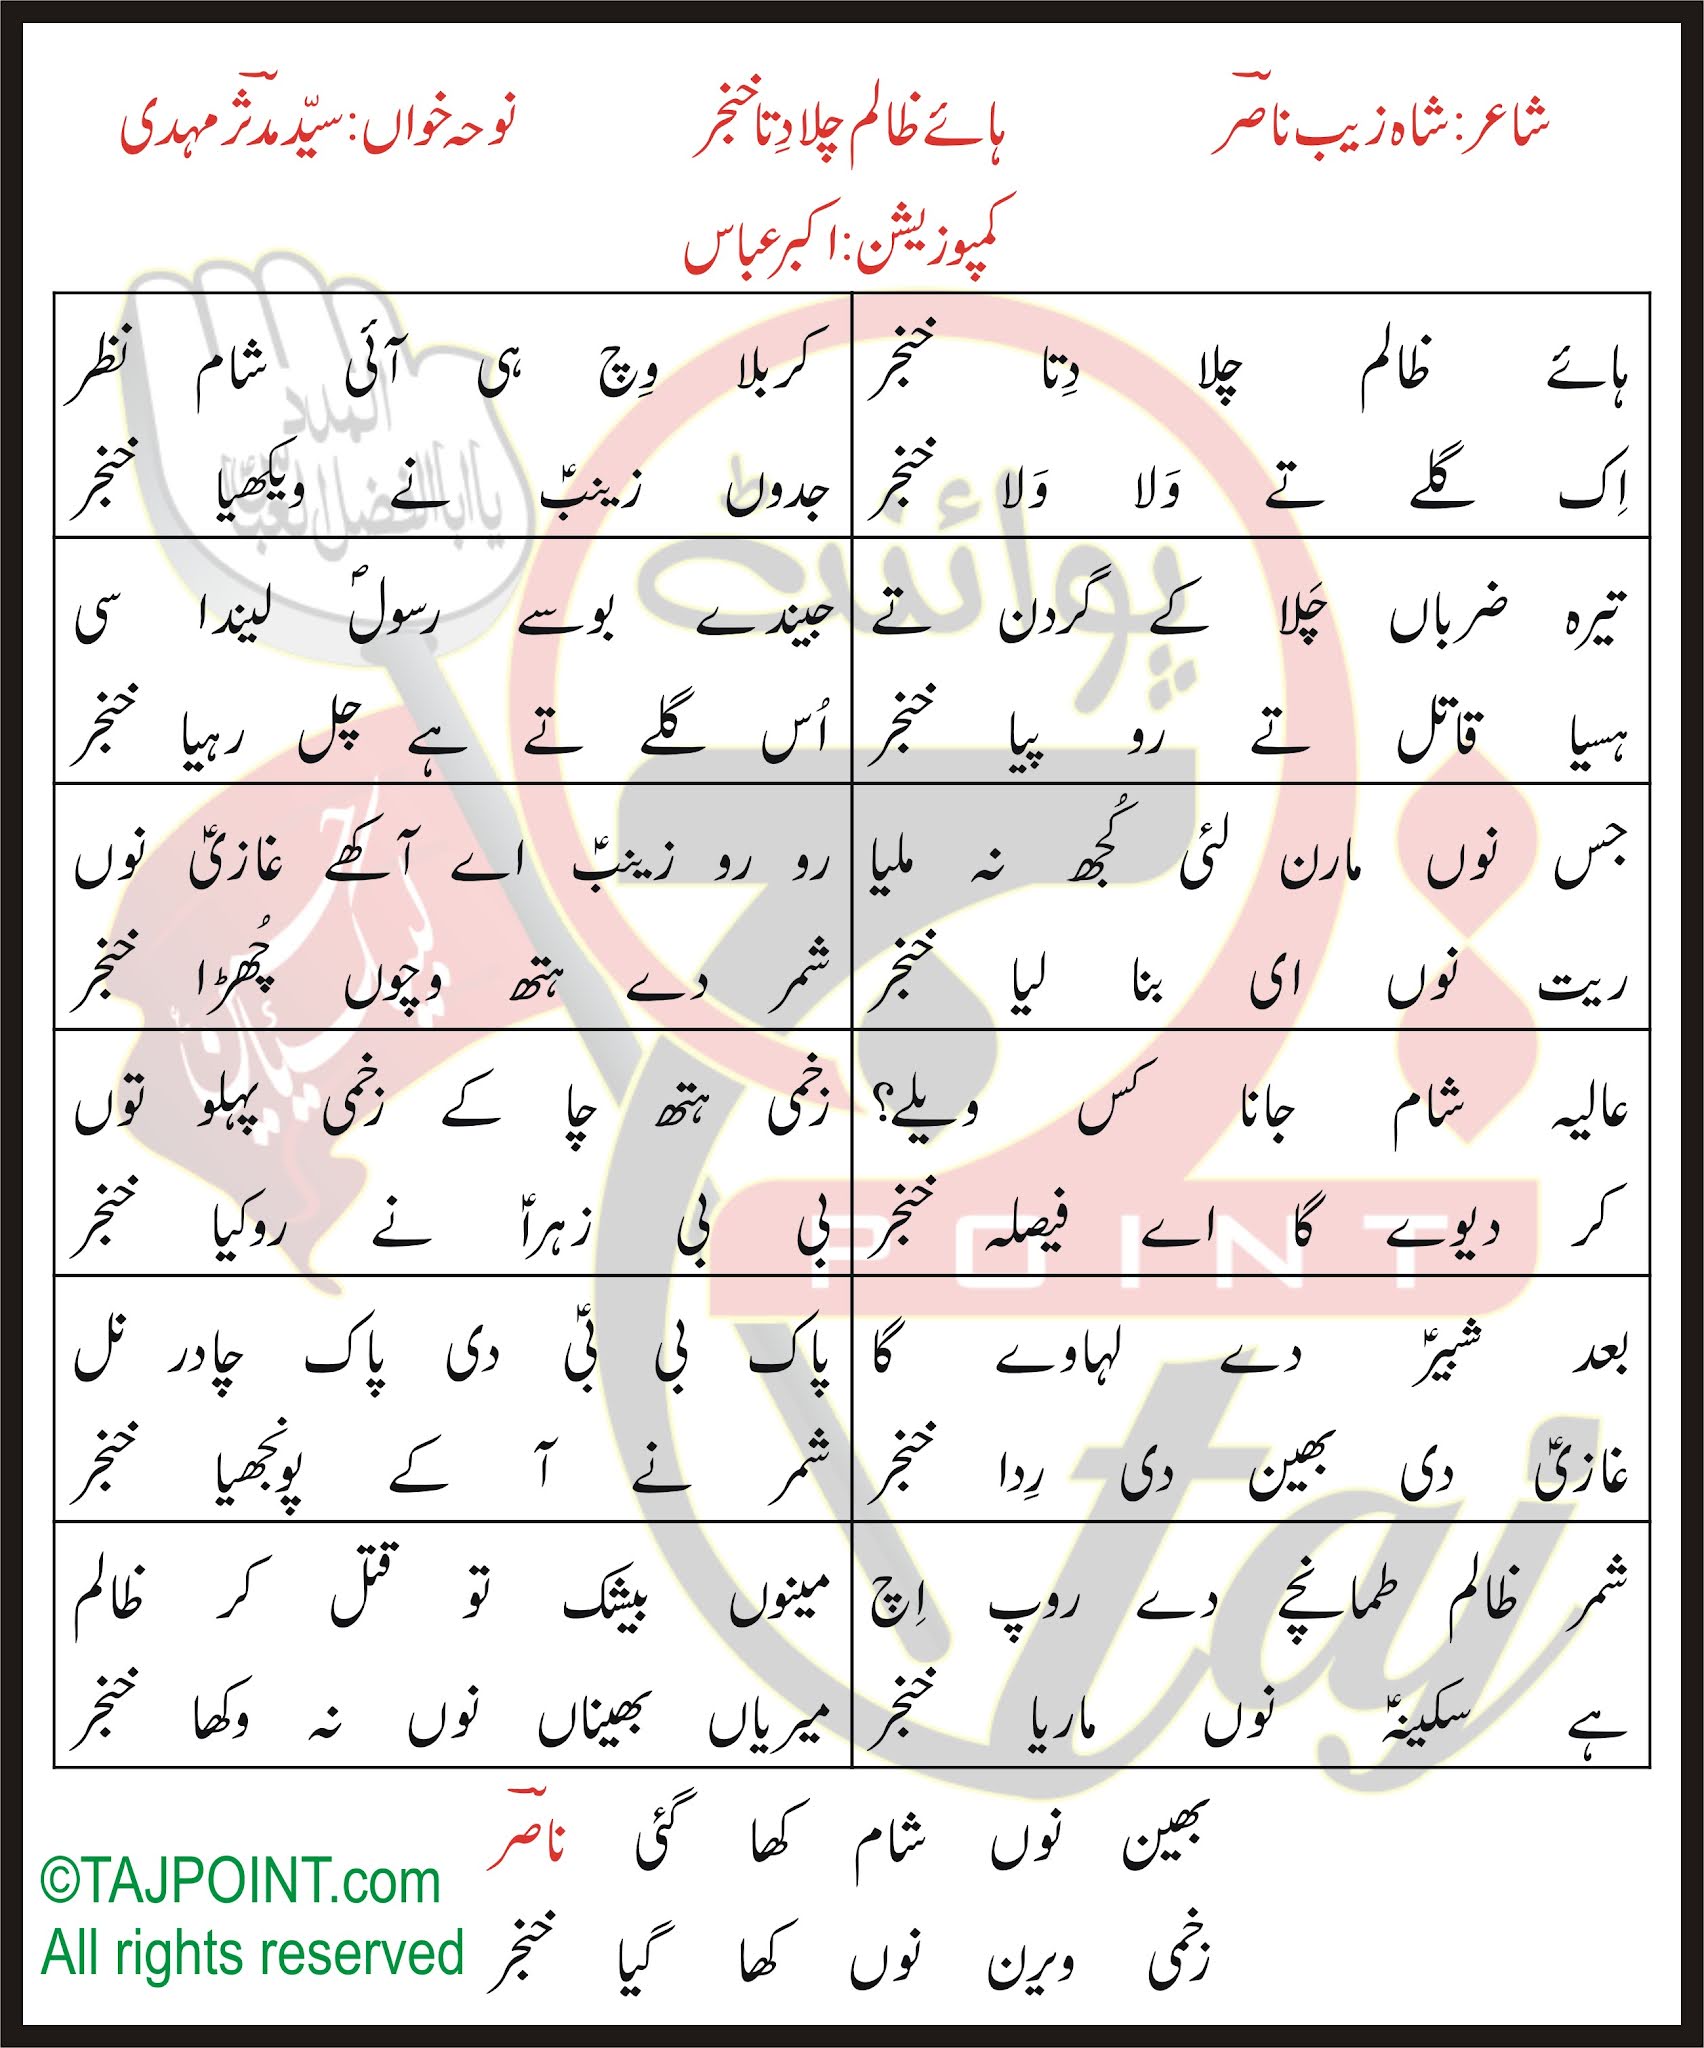 شاعر: شاہ زیب ناصرؔ
ہائے ظالم چلا دِتا خنجر
نوحہ خواں: سیّد مدثرؔ مہدی
کمپوزیشن: اکبر عباس
ہائے ظالم چلا دِتا خنجر
اِک گلے تے وَلا وَلا خنجر
کربلا وِچ ہی آئی شام نظر
جدوں زینبؑ نے ویکھیا خنجر
تیرہ ضرباں چَلا کے گردن تے
ہسیا قاتل تے رو پیا خنجر
جیندے بوسے رسولؐ لیندا سی
اُس گلے تے ہے چل رہیا خنجر
جس نوں مارن لئی کُجھ نہ ملیا
ریت نوں ای بنا لیا خنجر
رو رو زینبؑ اے آکھے غازیؑ نوں
شمر دے ہتھ وچوں چُھڑا خنجر
عالیہ شام جانا کس ویلے؟
کر دیوے گا اے فیصلہ خنجر
زخمی ہتھ چا کے زخمی پہلو توں
بی بی زہراؑ نے روکیا خنجر
بعد شبیرؑ دے لہاوے گا
غازیؑ دی بھین دی رِدا خنجر
پاک بی بیؑ دی پاک چادر نل
شمر نے آ کے پونجھیا خنجر
شمر ظالم طمانچے دے روپ اِچ
ہے سکینہؑ نوں ماریا خنجر
مینوں بیشک تو قتل کر ظالم
میریاں بھیناں نوں نہ وکھا خنجر
بھین نوں شام کھا گئی ناصرؔ
زخمی ویرن نوں کھا گیا خنجر
©TAJPOINT.com
All rights reserved
المدد
یا ابا الفضل العباسؑ
پوائنٹ
POINT
taj